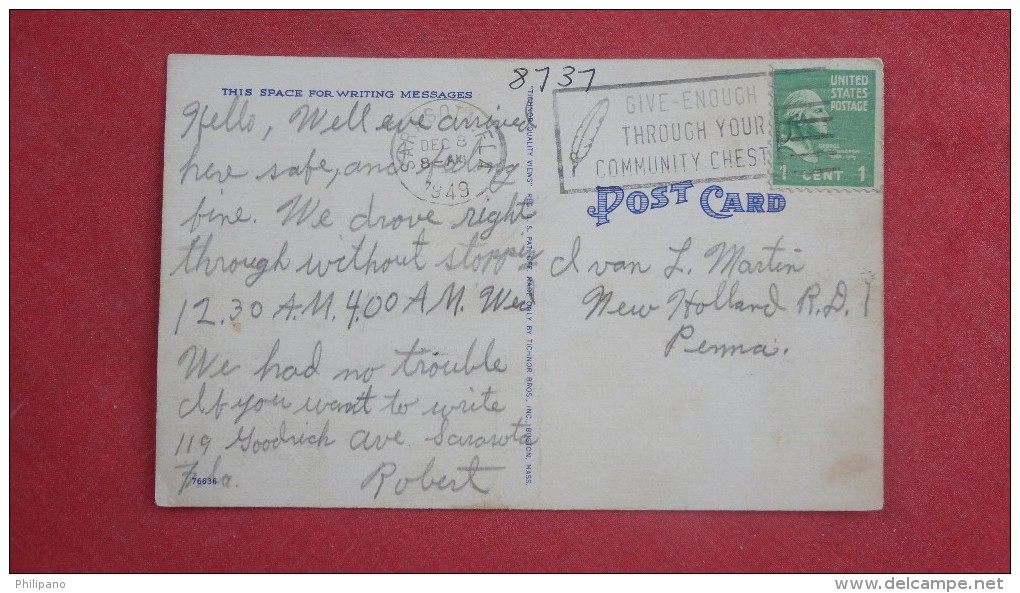 8737
THIS SPACE FOR WRITING MESSAGES
Hello, Well eve arrived
here safe, and feeling
fine. We drove right
through without stopping
12.30 A.M. 4.00 A.M. Wed
We had no trouble
If you want to write
119 Goodrich ave Sarasota
Fla. Robert
76636
SARASOTA
FLA
DEC 8
8 - AM
1949
"TICHNOR QUALITY VIEWS" REG. U. S. PAT. OFF. MADE ONLY BY TICHNOR BROS., INC., BOSTON, MASS.
GIVE-ENOUGH
THROUGH YOUR
COMMUNITY CHEST
UNITED
STATES
POSTAGE
GEORGE
WASHINGTON
1 CENT 1
POST CARD
Ivan L. Martin
New Holland R.D. 1
Penna.
Philipano
www.delcampe.net